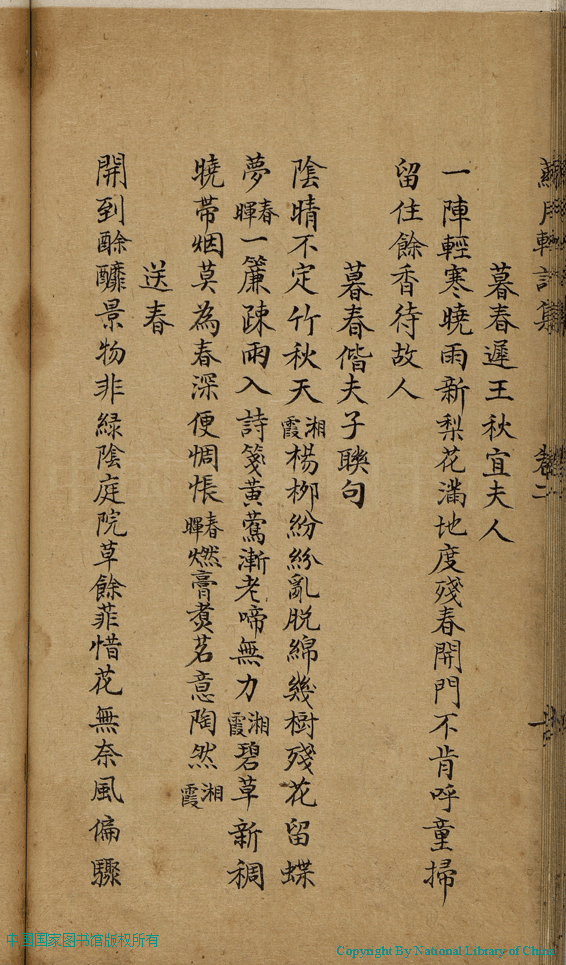 蘇月軒詩集 卷二 一
暮春遲王秋宜夫人
一陣輕寒曉雨新梨花滿地度殘春開門不肯呼童掃
留住餘香待故人
暮春偕夫子聯句
陰晴不定竹秋天湘霞楊柳紛紛亂脫綿幾樹殘花留蝶
夢春暉一簾疎雨入詩箋黃鶯漸老啼無力湘霞碧草新稠
曉帶烟莫為春深便惆悵春暉燃膏煑茗意陶然湘霞
送春
開到酴醾景物非綠陰庭院草餘菲惜花無奈風偏驟
中国国家图书馆版权所有
Copyright By National Library of China